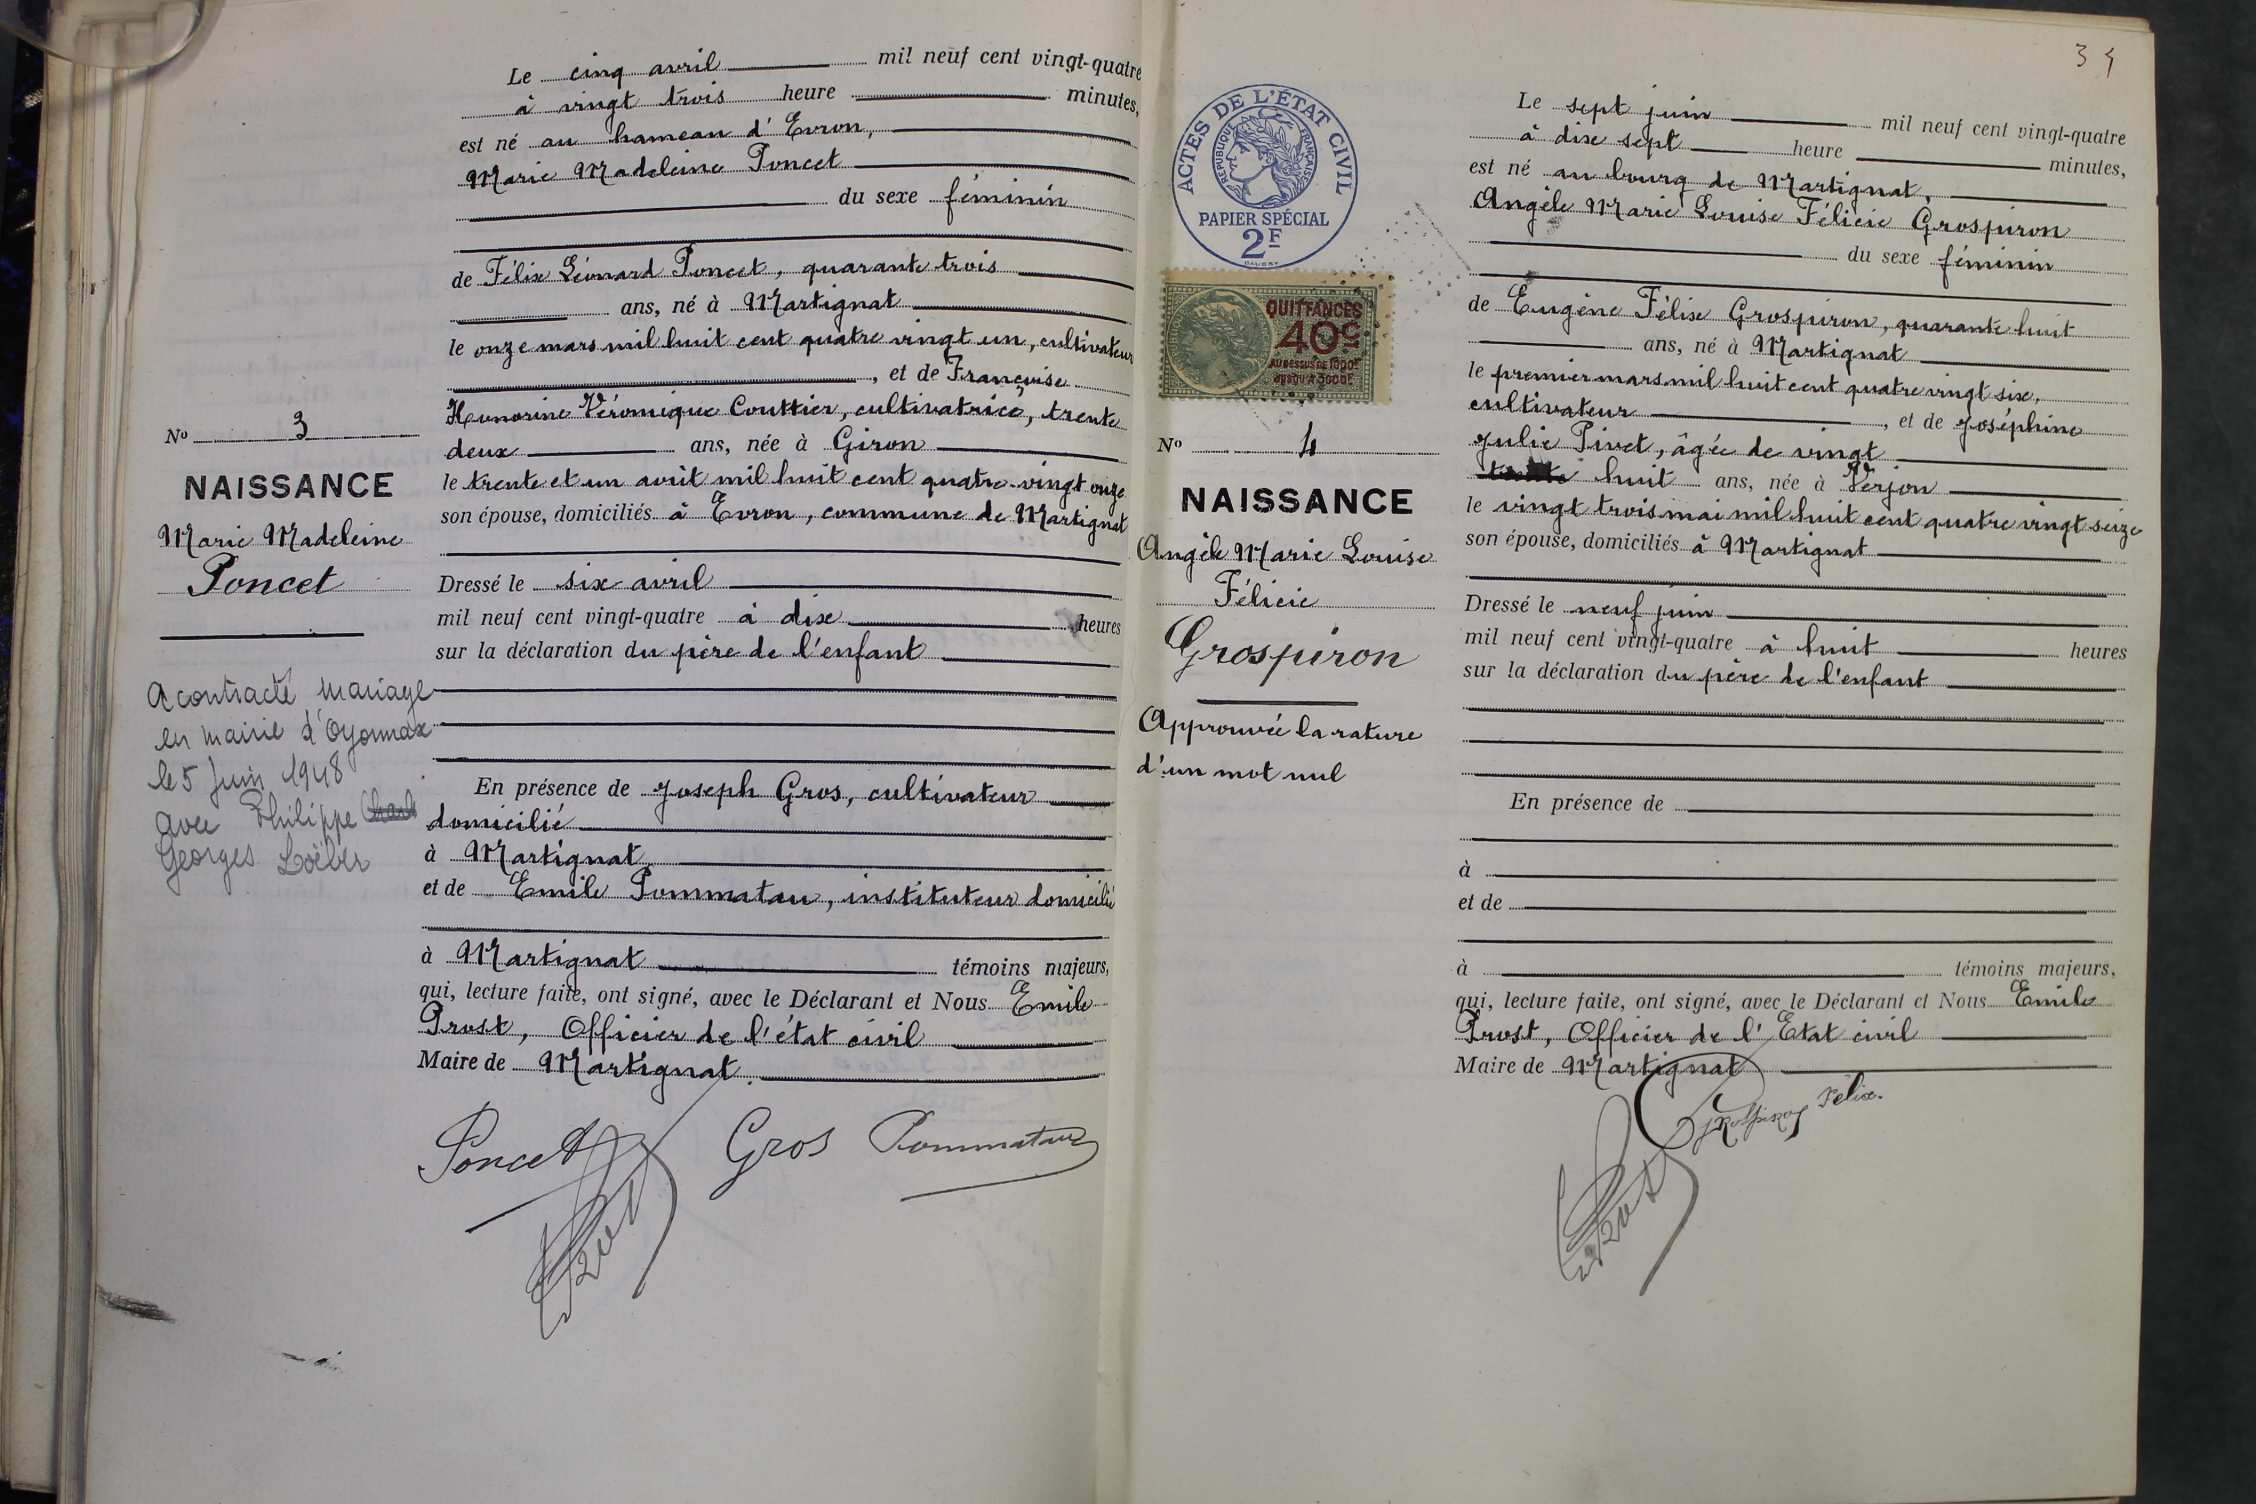 Le cinq avril mil neuf cent vingt-quatre
à vingt trois heure minutes,
est né au hameau d'Evron,
Marie Madeleine Poncet
du sexe féminin
de Félix Léonard Poncet, quarante trois
ans, né à Martignat
le onze mars mil huit cent quatre vingt un, cultivateur
, et de Françoise
Honorine Véronique Couttier, cultivatrice, trente
deux ans, née à Giron
le trente et un août mil huit cent quatre-vingt onze
son épouse, domiciliés à Evron, commune de Martignat
Dressé le six avril
mil neuf cent vingt-quatre à dix heures
sur la déclaration du père de l'enfant
En présence de Joseph Gros, cultivateur
domicilié
à Martignat,
et de Emile Pommatau, instituteur domicilié
à Martignat témoins majeurs,
qui, lecture faite, ont signé, avec le Déclarant et Nous Emile
Prost, Officier de l'état civil
Maire de Martignat.
Poncet Gros Pommatau
Prost
No 3
NAISSANCE
Marie Madeleine
Poncet
A contracté mariage
en mairie d'Oyonnax
le 5 Juin 1948
avec Philippe
Georges Loëber
34
ACTES DE L'ÉTAT CIVIL
RÉPUBLIQUE FRANÇAISE
PAPIER SPÉCIAL
2F
QUITTANCES
40c
AU DESSUS DE 1000F
JUSQU'A 3000F
No 4
NAISSANCE
Angèle Marie Louise
Félicie
Grospiron
Approuvée la rature
d'un mot nul
Le sept juin mil neuf cent vingt-quatre
à dix sept heure minutes,
est né au bourg de Martignat,
Angèle Marie Louise Félicie Grospiron
du sexe féminin
de Eugène Félix Grospiron, quarante huit
ans, né à Martignat
le premier mars mil huit cent quatre vingt six,
cultivateur , et de Joséphine
Julie Pivet, âgée de vingt
huit ans, née à Verjon
le vingt trois mai mil huit cent quatre vingt seize
son épouse, domiciliés à Martignat
Dressé le neuf juin
mil neuf cent vingt-quatre à huit heures
sur la déclaration du père de l'enfant
En présence de
à
et de
à témoins majeurs,
qui, lecture faite, ont signé, avec le Déclarant et Nous Emile
Prost, Officier de l'Etat civil
Maire de Martignat
Grospiron Félix.
Prost